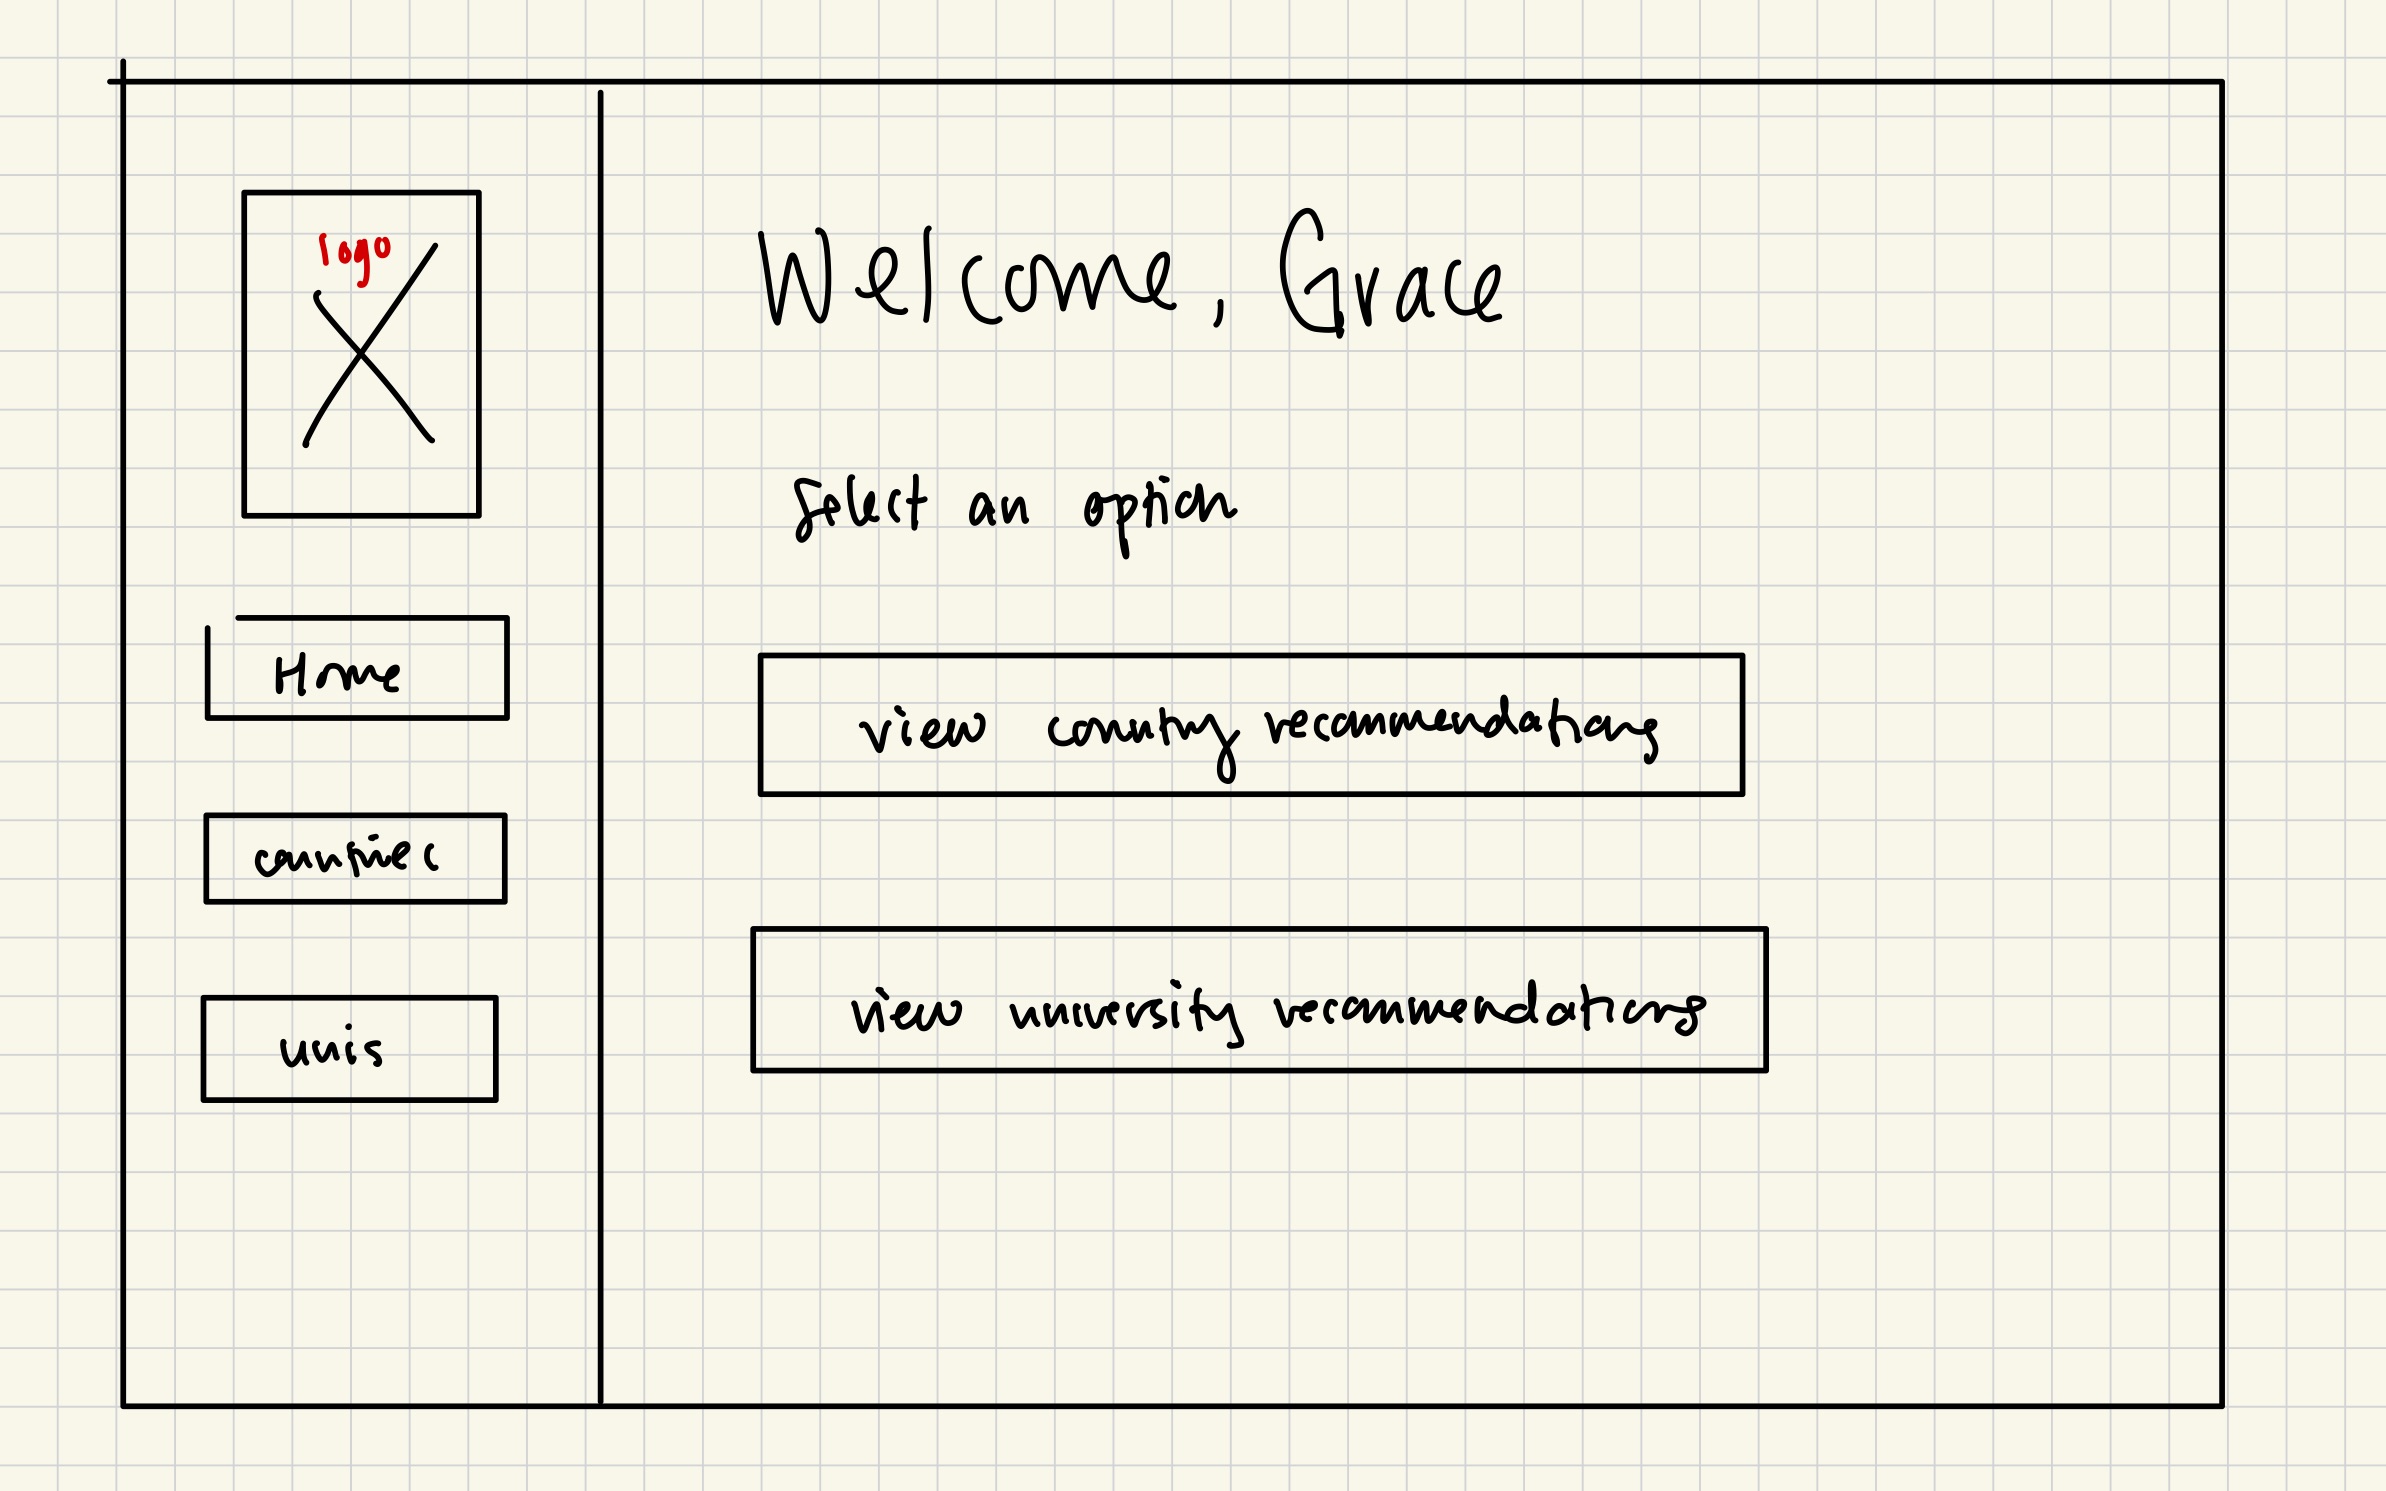 logo
Home
countries
unis
Welcome, Grace
Select an option
view country recommendations
view university recommendations